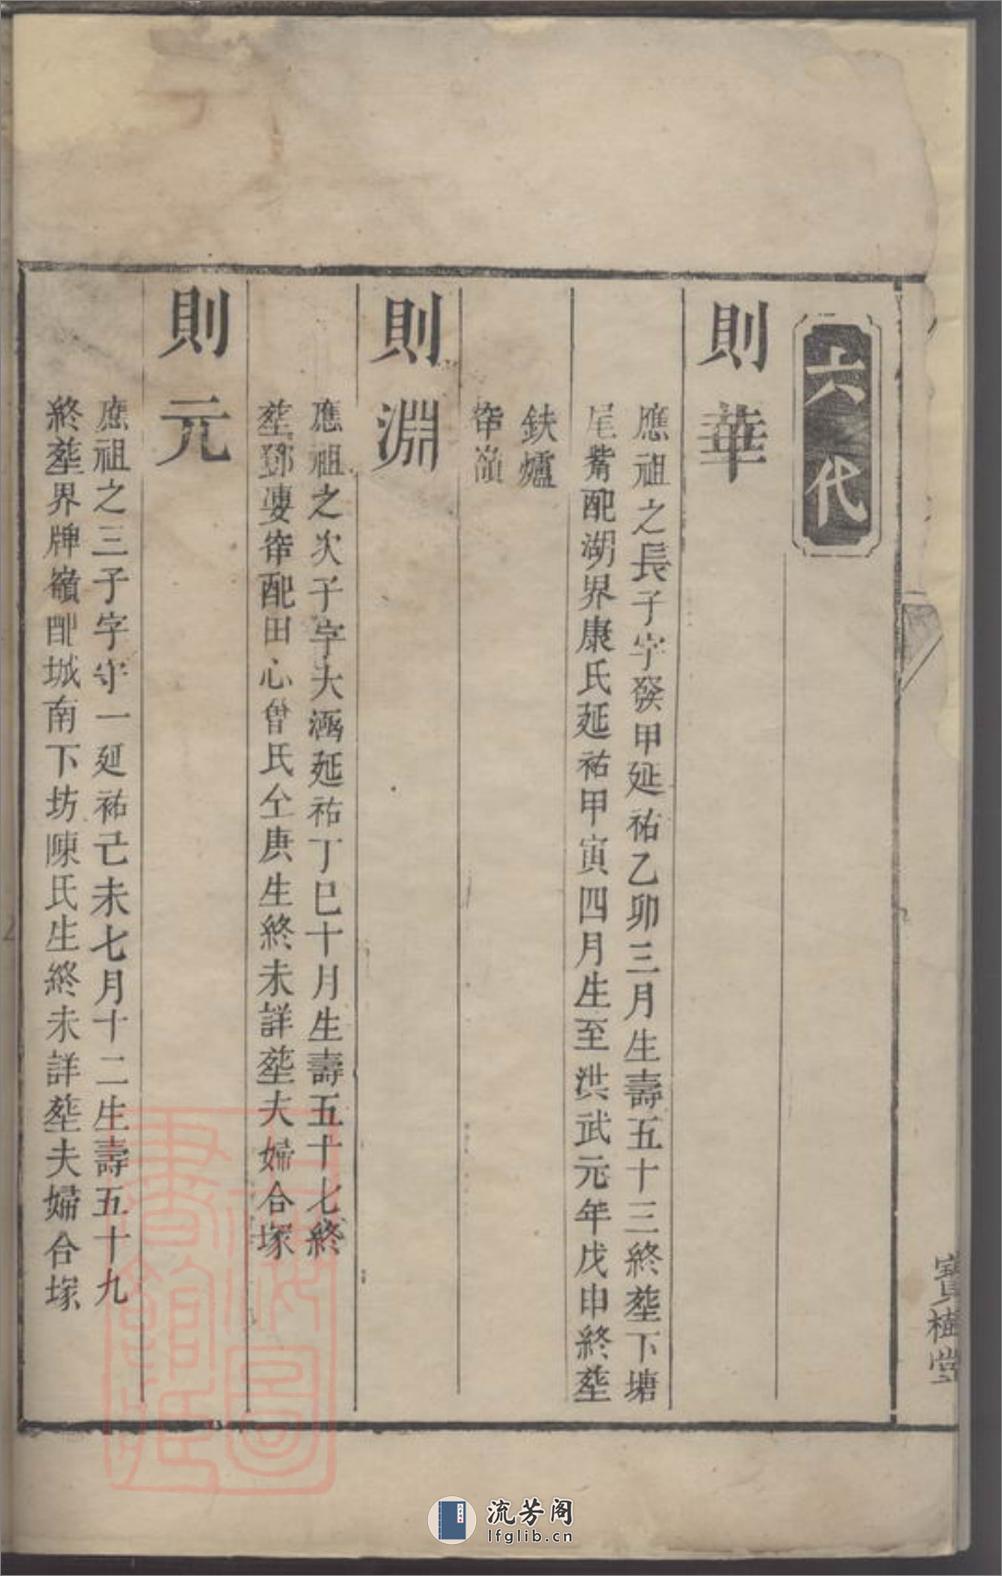 六代
則華
應祖之長子字癸甲延祐乙卯三月生壽五十三終塟下塘
尾觜配湖界康氏延祐甲寅四月生至洪武元年戊申終塟
鈇爐
窂嵿
則淵
應祖之次子字大涵延祐丁巳十月生壽五十七終
塟鄧婁窂配田心曾氏仝庚生終未詳塟夫婦合塚
則元
應祖之三子字守一延祐己未七月十二生壽五十九
終塟界牌嶺配城南下坊陳氏生終未詳塟夫婦合塚
寶樹堂
上海圖書館藏
流芳阁
lfglib.cn